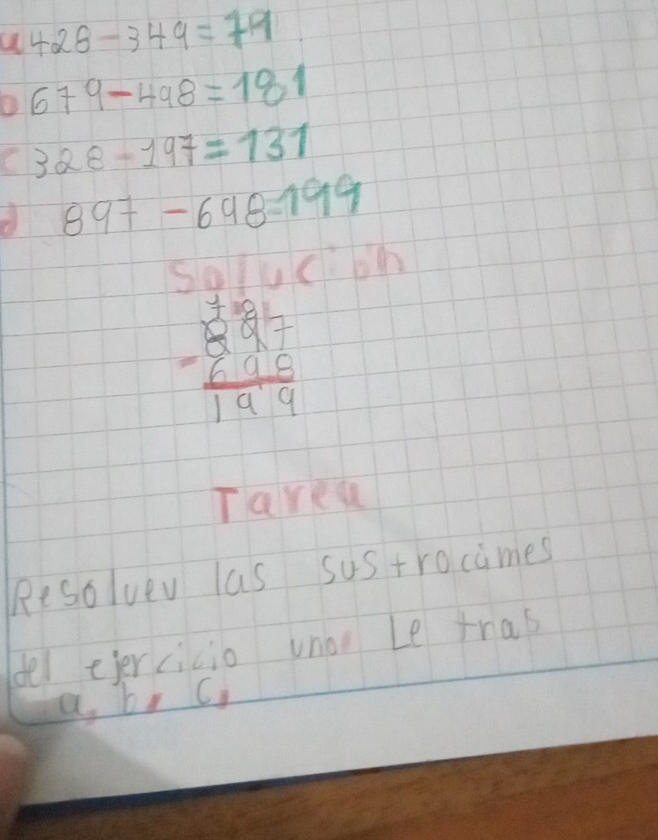 a 428-349=79
b 679-498=181
c 328-197=131
d 897-698=199
Solución
7 8
897
-698
199
Tarea
Resolver las sustrocames
del ejercicio uno Le tras
a, b, c,